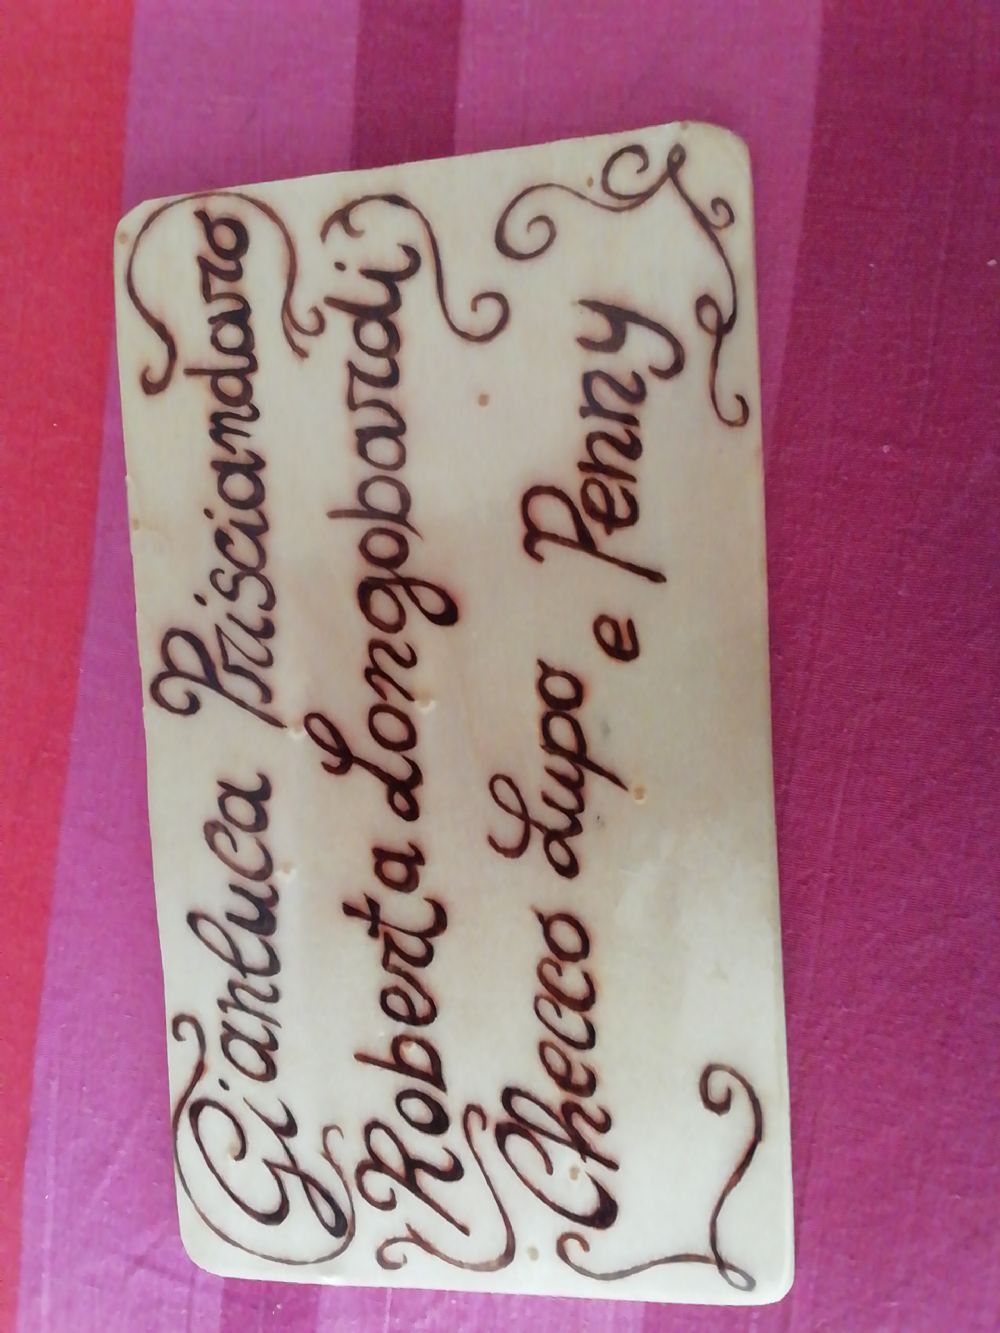 Gianluca Prisciandaro
Roberta Longobardi
Checco Lupo e Penny